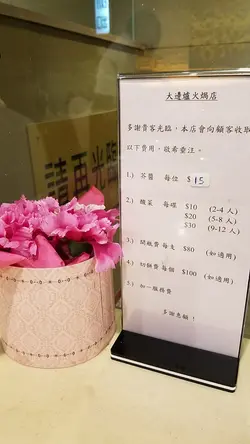 大邊爐火焗店
多謝貴客光臨，本店會向顧客收取
以下費用，敬希垂注。
1.) 茶醬 每位 $15
2.) 酸菜 每碟 $10 (2-4人)
$20 (5-8人)
$30 (9-12人)
3.) 開瓶費 每支 $80 (如適用)
4.) 切餅費 每個 $100 (如適用)
5.) 加一服務費
多謝惠顧！
請再光臨